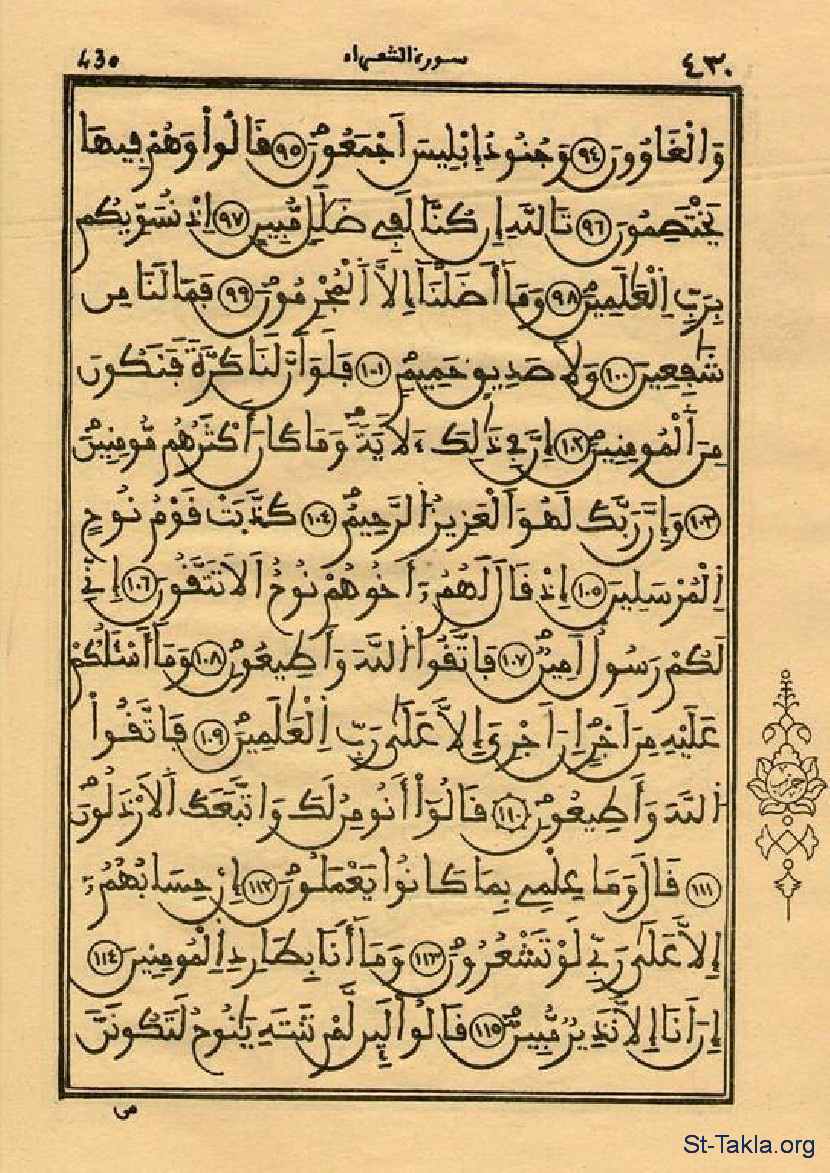 ٤٣٠ سورة الشعراء 430
وَالْغَاوُۥنَ ٩٤ وَجُنُودُ إِبْلِيسَ أَجْمَعُونَ ٩٥ قَالُواْ وَهُمْ فِيهَا
يَخْتَصِمُونَ ٩٦ تَاللَّهِ إِن كُنَّا لَفِي ضَلَٰلٖ مُّبِينٍ ٩٧ إِذْ نُسَوِّيكُم
بِرَبِّ اِ۬لْعَٰلَمِينَ ٩٨ وَمَا أَضَلَّنَا إِلَّا اَ۬لْمُجْرِمُونَ ٩٩ فَمَا لَنَا مِن
شَٰفِعِينَ ١٠٠ وَلَا صَدِيقٍ حَمِيمٖ ١٠١ فَلَوَ اَنَّ لَنَا كَرَّةٗ فَنَكُونَ
مِنَ اَ۬لْمُومِنِينَ ١٠٢ إِنَّ فِي ذَٰلِكَ ءَلَايَةٗ وَمَا كَانَ أَكْثَرُهُم مُّومِنِينَ
١٠٣ وَإِنَّ رَبَّكَ لَهُوَ اَ۬لْعَزِيزُ اُ۬لرَّحِيمُ ١٠٤ كَذَّبَتْ قَوْمُ نُوحٍ
اِ۬لْمُرْسَلِينَ ١٠٥ إِذْ قَالَ لَهُمُۥ أَخُوهُمْ نُوحٌ اَلَا تَتَّقُونَ ١٠٦ إِنِّي
لَكُمْ رَسُولٌ اَمِينٌ ١٠٧ فَاتَّقُوا اُ۬للَّهَ وَأَطِيعُونِ ١٠٨ وَمَا أَسْـَٔلُكُمْ
عَلَيْهِ مِنَ اَجْرٍ اِنَ اَجْرِيَ إِلَّا عَلَىٰ رَبِّ اِ۬لْعَٰلَمِينَ ١٠٩ فَاتَّقُواْ
اُ۬للَّهَ وَأَطِيعُونِ ١١٠ قَالُوٓاْ أَنُومِنُ لَكَ وَاتَّبَعَكَ اَ۬لَارْذَلُونَ
١١١ قَالَ وَمَا عِلْمِي بِمَا كَانُوا يَعْمَلُونَ ١١٢ إِنْ حِسَابُهُمُۥ
إِلَّا عَلَىٰ رَبِّي لَوْ تَشْعُرُونَ ١١٣ وَمَا أَنَا بِطَارِدِ اِ۬لْمُومِنِينَ ١١٤
إِنَ اَنَا إِلَّا نَذِيرٌ مُّبِينٌ ١١٥ قَالُوا لَئِن لَّمْ تَنتَهِ يَٰنُوحُ لَتَكُونَنَّ
من
St-Takla.org